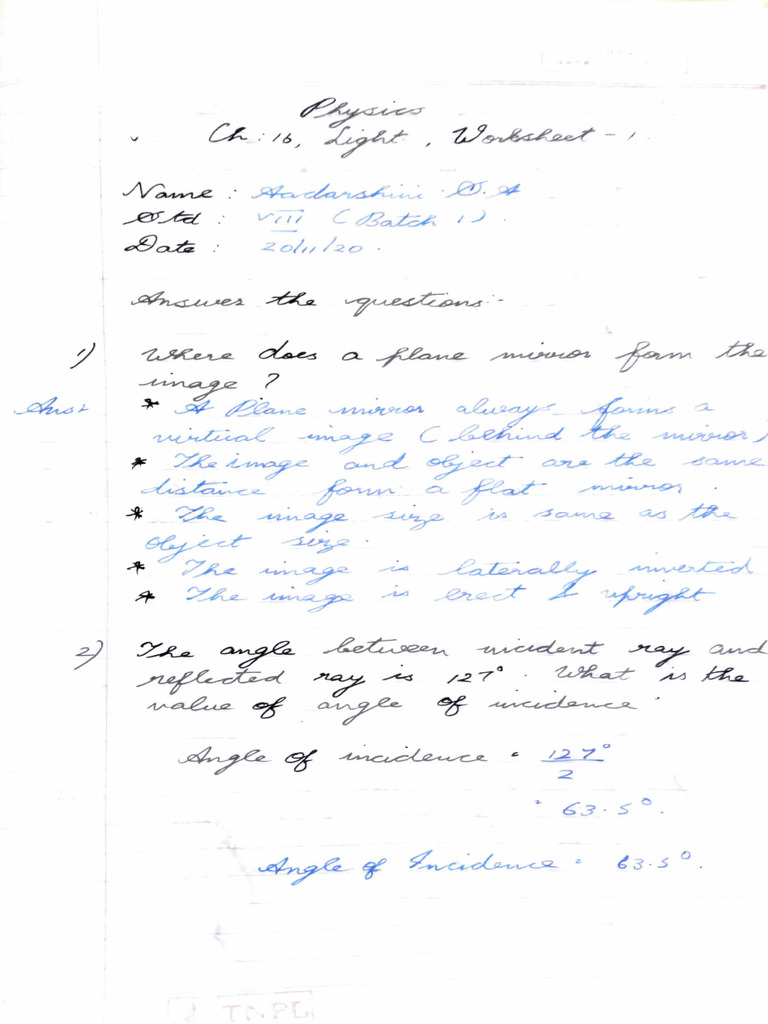 Physics
Ch : 16, Light, Worksheet - 1
Name : Aadarshini S. A
Std : VIII (Batch 1)
Date : 20/11/20.
Answer the questions:-
1) Where does a plane mirror form the
image ?
Ans: * A Plane mirror always forms a
virtual image (behind the mirror)
* The image and object are the same
distance form a flat mirror.
* The image size is same as the
object size.
* The image is laterally inverted
* The image is erect & upright
2) The angle between incident ray and
reflected ray is 127°. What is the
value of angle of incidence
Angle of incidence = 127°
2
= 63.5°.
Angle of Incidence = 63.5°.
TNPL